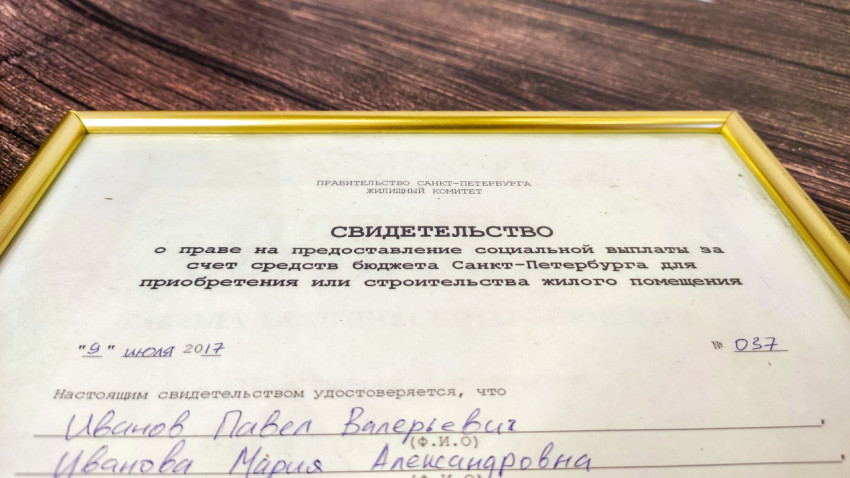 ПРАВИТЕЛЬСТВО САНКТ-ПЕТЕРБУРГА
ЖИЛИЩНЫЙ КОМИТЕТ
СВИДЕТЕЛЬСТВО
о праве на предоставление социальной выплаты за
счет средств бюджета Санкт-Петербурга для
приобретения или строительства жилого помещения
"9" июля 2017 № 037
Настоящим свидетельством удостоверяется, что
Иванов Павел Валерьевич,
(Ф.И.О)
Иванова Мария Александровна,
(Ф.И.О)